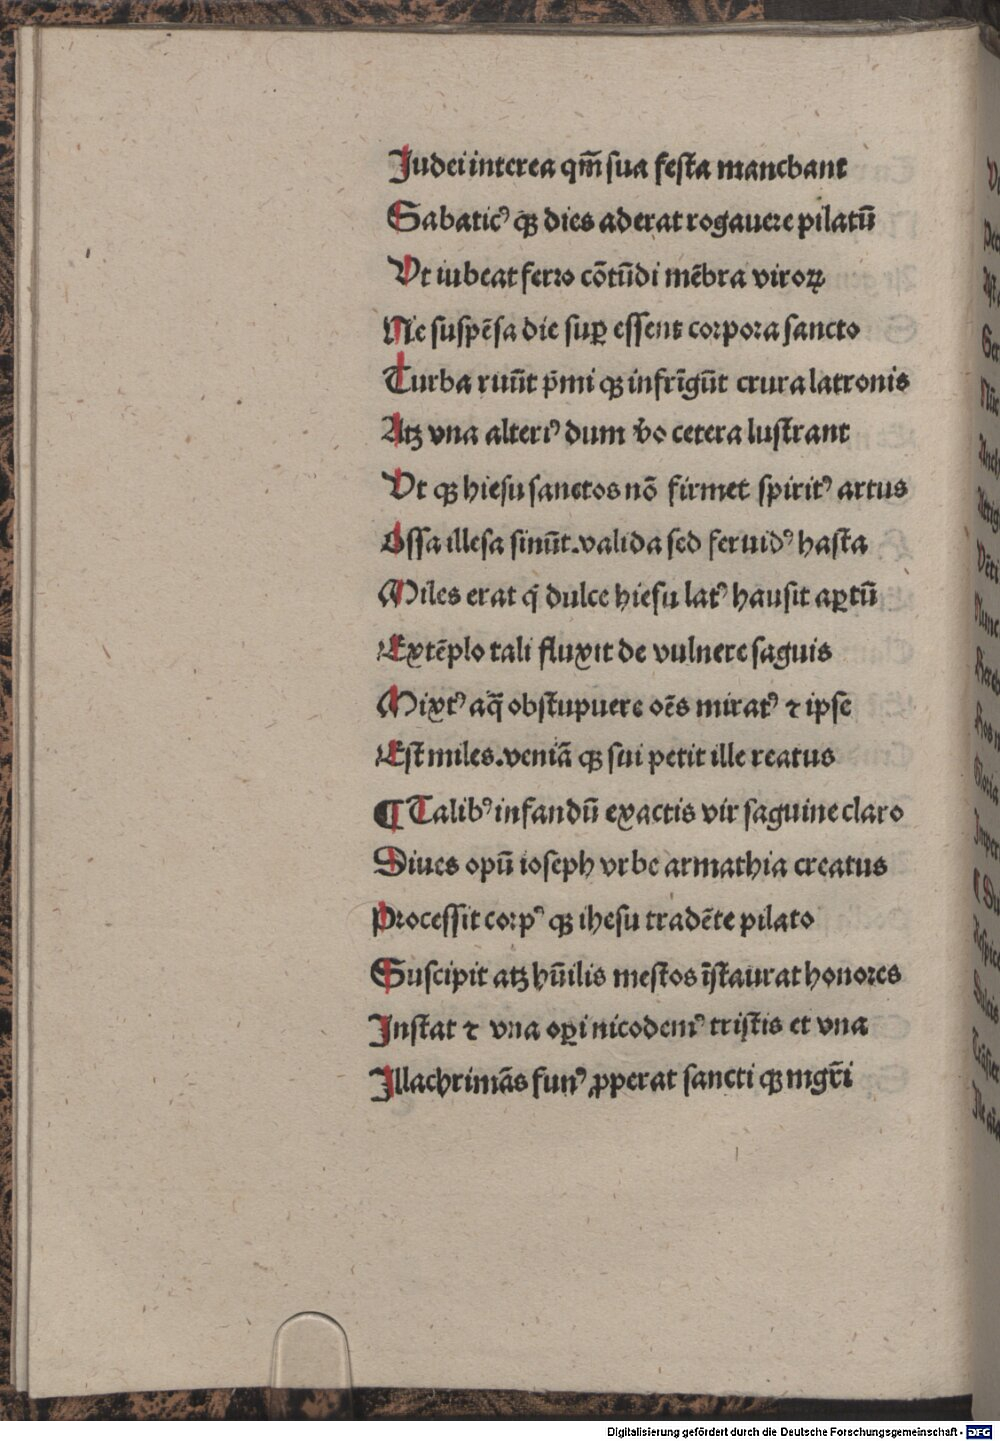 Judei interea qm̄ sua festa manebant
Sabaticꝰ qꝫ dies aderat rogauere pilatū
Vt iubeat ferro cōtūdi mēbra viroꝝ
Ne suspēsa die suꝑ essent corpora sancto
Turba ruūt p̄mi qꝫ infrīgūt crura latronis
Atqꝫ vna alteriꝰ dum v̄o cetera lustrant
Vt qꝫ hiesu sanctos nō firmet spiritꝰ artus
Ossa illesa sinūt. valida sed feruidꝰ hasta
Miles erat q̄ dulce hiesu latꝰ hausit aꝑtū
Extēplo tali fluxit de vulnere saguis
Mixtꝰ aq̄ obstupuere oēs miratꝰ ⁊ ipse
Est miles. veniā qꝫ sui petit ille reatus
¶ Talibꝰ infandū exactis vir saguine claro
Diues opū ioseph vrbe armathia creatus
Processit corpꝰ qꝫ ihesu tradēte pilato
Suscipit atqꝫ hūilis mestos īstaurat honores
Instat ⁊ vna oꝑi nicodemꝰ tristis et vna
Illachrimās funꝰ ꝓperat sancti qꝫ mgr̄i
Digitalisierung gefördert durch die Deutsche Forschungsgemeinschaft - DFG